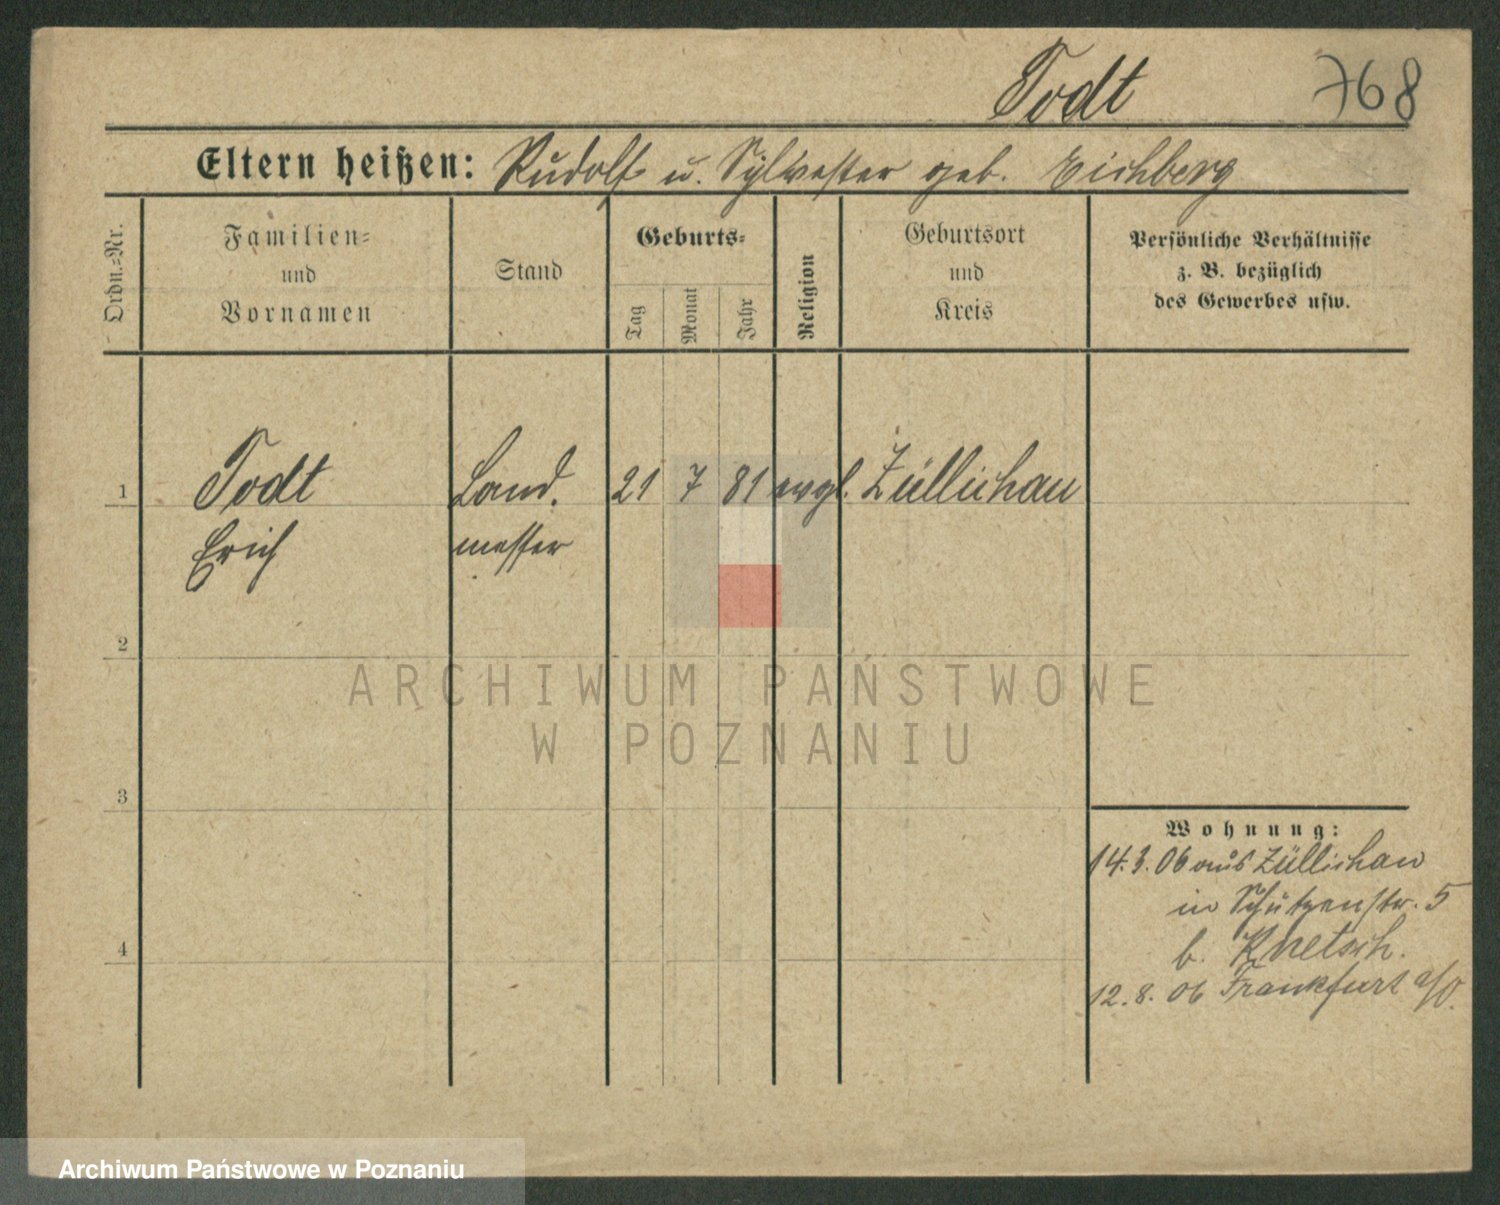 Todt 768
Eltern heißen: Rudolf u. Sylvester geb. Eichberg
Ordn.-Nr.
Familien-
und
Vornamen
Stand
Geburts-
Tag
Monat
Jahr
Religion
Geburtsort
und
Kreis
Persönliche Verhältnisse
z. B. bezüglich
des Gewerbes usw.
1 Todt Land. 21 7 81 evgl. Züllichau
Erich messer
2
ARCHIWUM PAŃSTWOWE
W POZNANIU
3
Wohnung:
14.3.06 aus Züllichau
in Schützenstr. 5
b. Knetsch.
4
12.8.06 Frankfurt a/O.
Archiwum Państwowe w Poznaniu